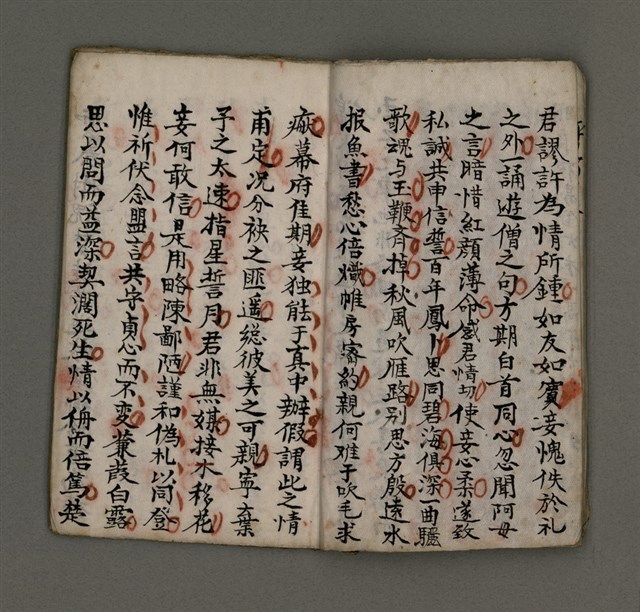 君謬許為情所鍾如友如賓妾愧佚於礼
之外一誦遊僧之句方期白首同心忽聞阿母
之言暗惜紅顏薄命感君情切使妾心柔遂致
私誠共申信誓百年鳳卜思同碧海俱深一曲驪
歌魂与玉鞭斉掉秋風吹雁路別思方殷遠水
报魚書愁心倍熾帷房密約親何难于吹毛求
疵幕府佳期妾独能于真中辦假謂此之情
甫定况分袂之匪遥縂彼美之可親寧棄
子之太速指星誓月君非無媒接木移花
妾何敢信是用略陳鄙陋謹和偽札以同登
惟祈伏念盟言共守貞心而不变蒹葭白露
思以閣而益深契濶死生情以侮而倍篤楚